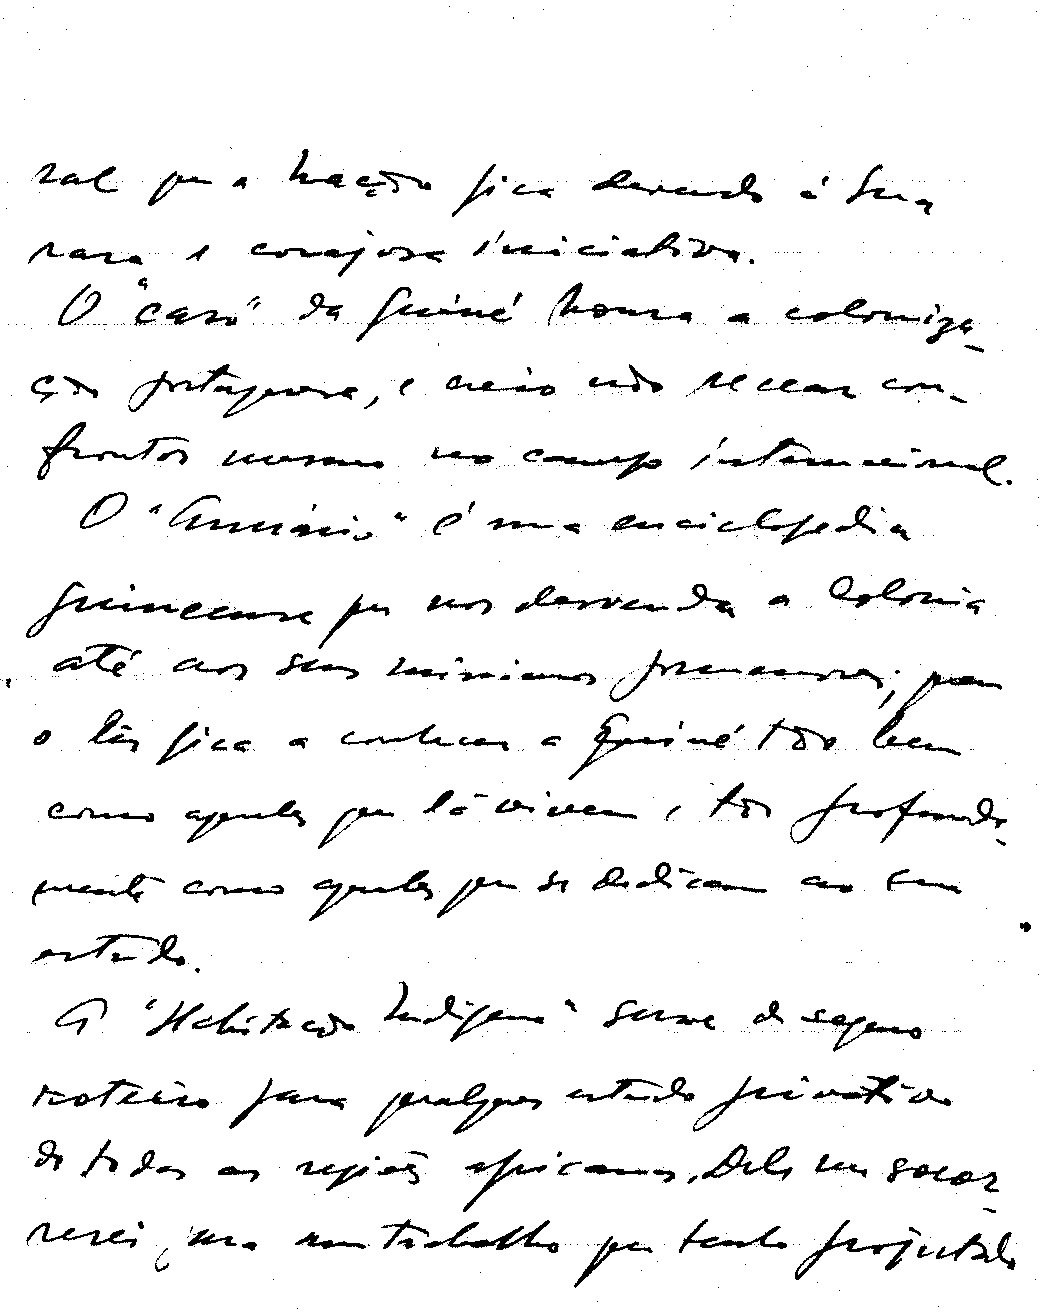 ral que a Nação fica devendo á Sua
rara e corajosa iniciativa.
O "caso" da Guiné honra a coloniza-
ção portuguesa, e creio não recear con-
frontos mesmo no campo internacional.
O "Anuário" é uma enciclopedia
guineense que nos desvenda a Colonia
até aos seus minimos pormenores; quem
o lêr fica a conhecer a Guiné tão bem
como aqueles que lá vivem e tão profunda-
mente como aqueles que se dedicam ao seu
estudo.
A "Habitação Indigena" serve de seguro
roteiro para qualquer estudo privativo
de todas as regiões africanas. Dele me socor-
rerei, num trabalho que tenho projectado